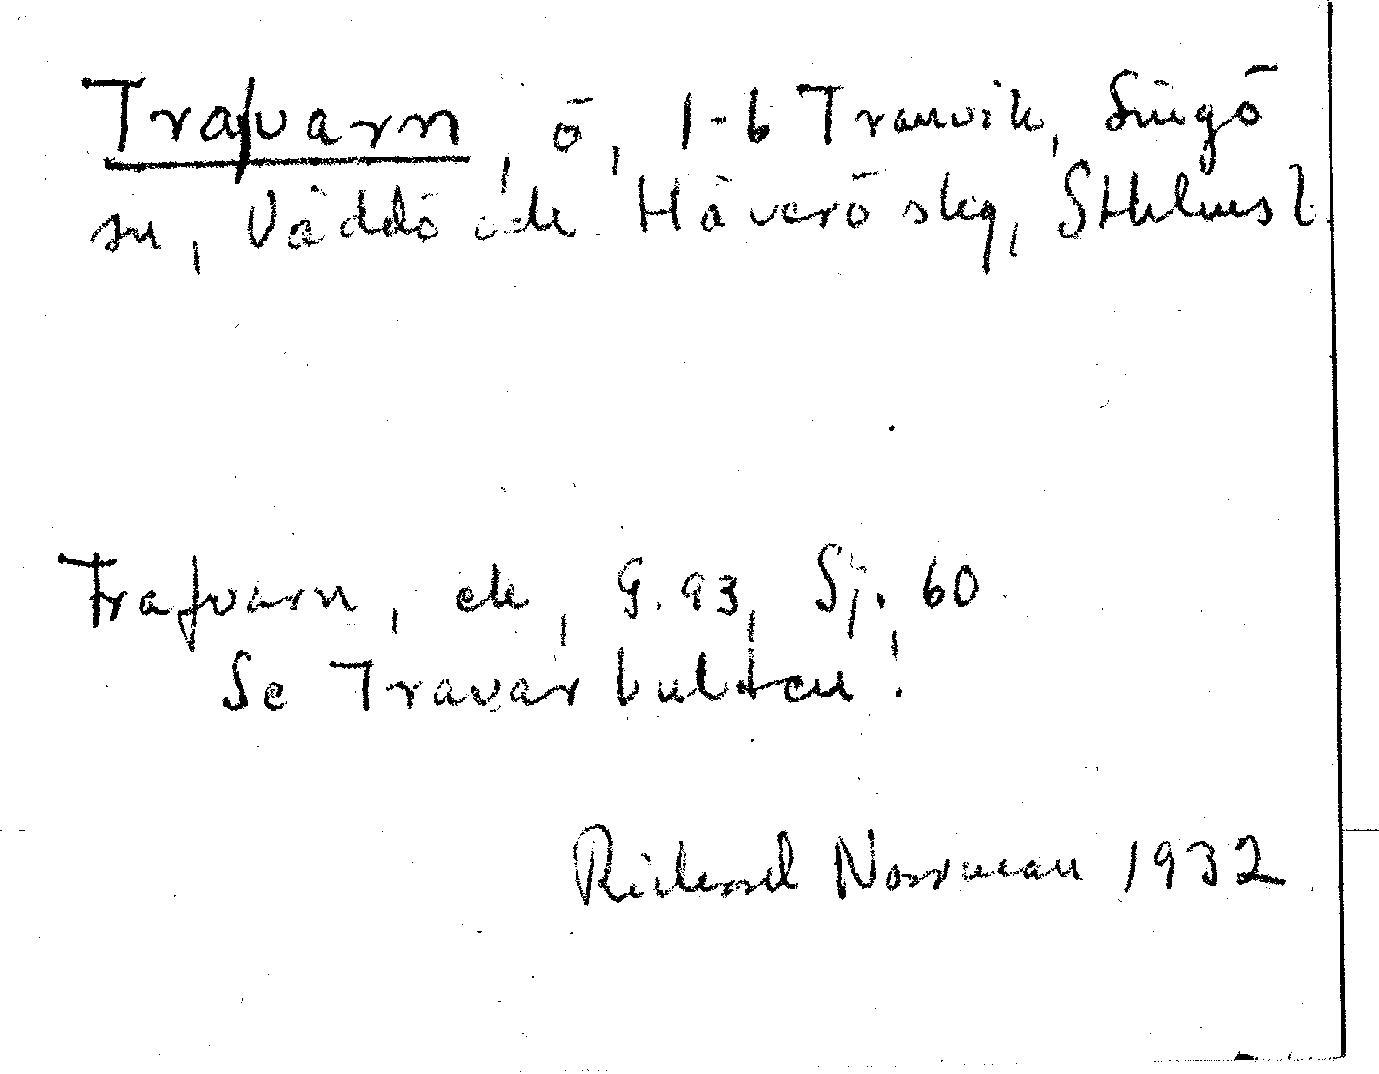 Trafvarn, ö, 1-6 Tranvik, Singö
sn, Väddö och Häverö skg, Sthlms l.
Trafvarn, ek, G. 93, Sj. 60
Se Travarbulten!
Richard Norrman 1932